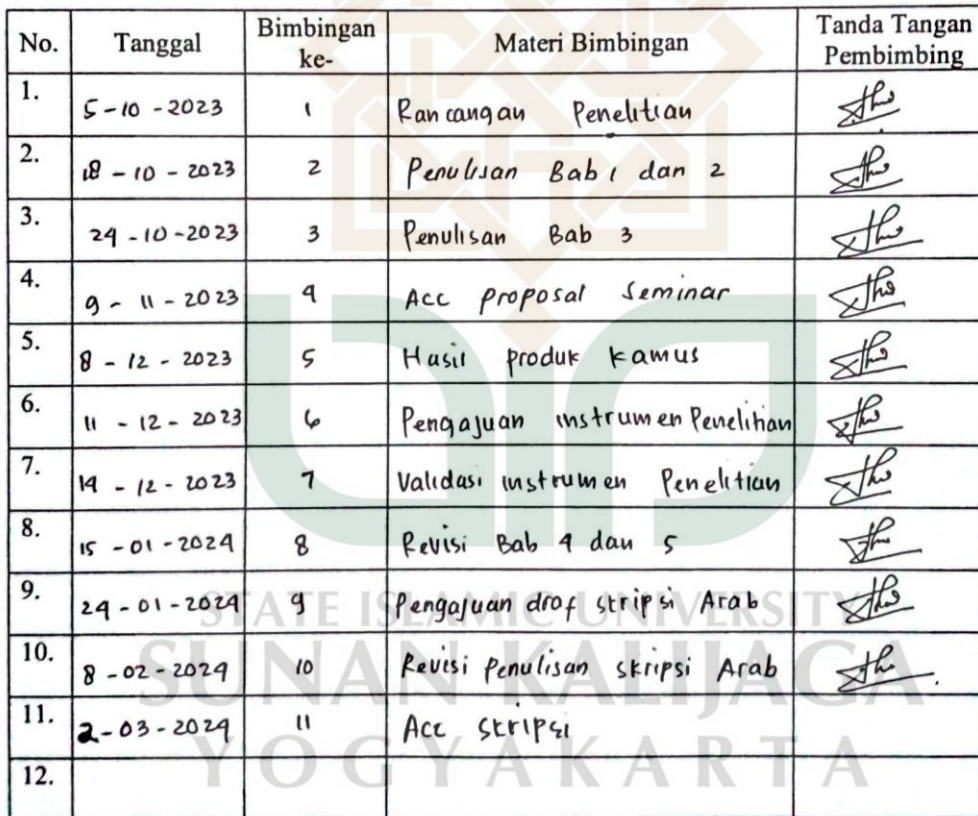 No. Tanggal Bimbingan ke- Materi Bimbingan Tanda Tangan Pembimbing
1. 5-10-2023 1 Rancangan Penelitian
2. 18-10-2023 2 Penulisan Bab 1 dan 2
3. 24-10-2023 3 Penulisan Bab 3
4. 9-11-2023 4 Acc proposal Seminar
5. 8-12-2023 5 Hasil produk kamus
6. 11-12-2023 6 Pengajuan instrumen Penelitian
7. 14-12-2023 7 Validasi instrumen Penelitian
8. 15-01-2024 8 Revisi Bab 4 dan 5
9. 24-01-2024 9 Pengajuan draf skripsi Arab
10. 8-02-2024 10 Revisi Penulisan skripsi Arab
11. 2-03-2024 11 Acc skripsi
12.
STATE ISLAMIC UNIVERSITY
SUNAN KALIJAGA
YOGYAKARTA